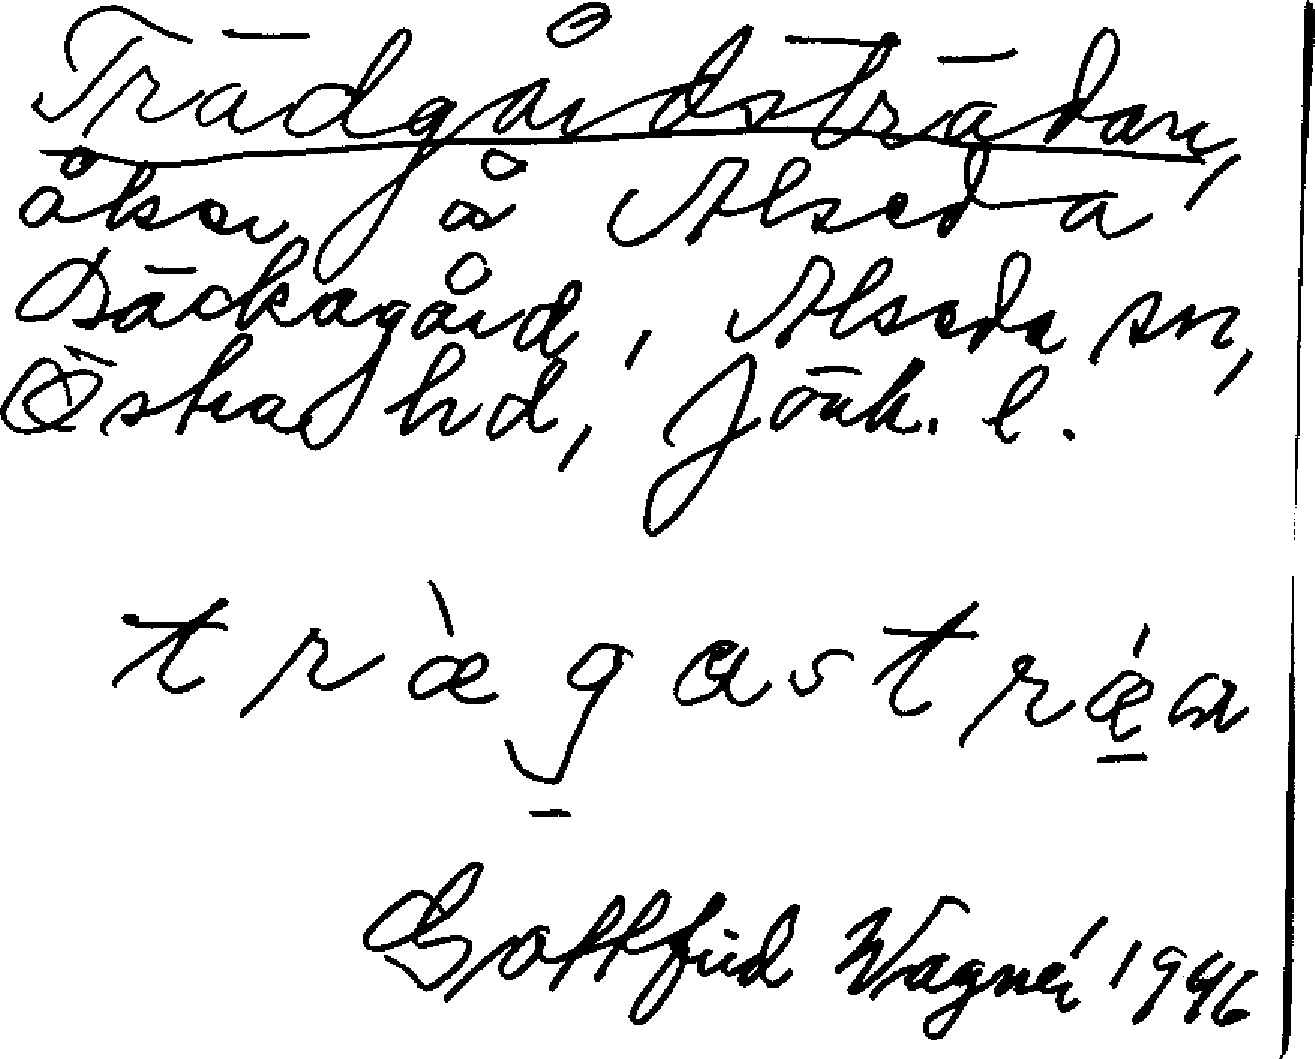 Trädgårdsträdan,
åker å Alseda
Bäckagård, Alseda sn,
Östra hd, Jönk. l.
trægastræa
Gottfrid Wagnér 1946